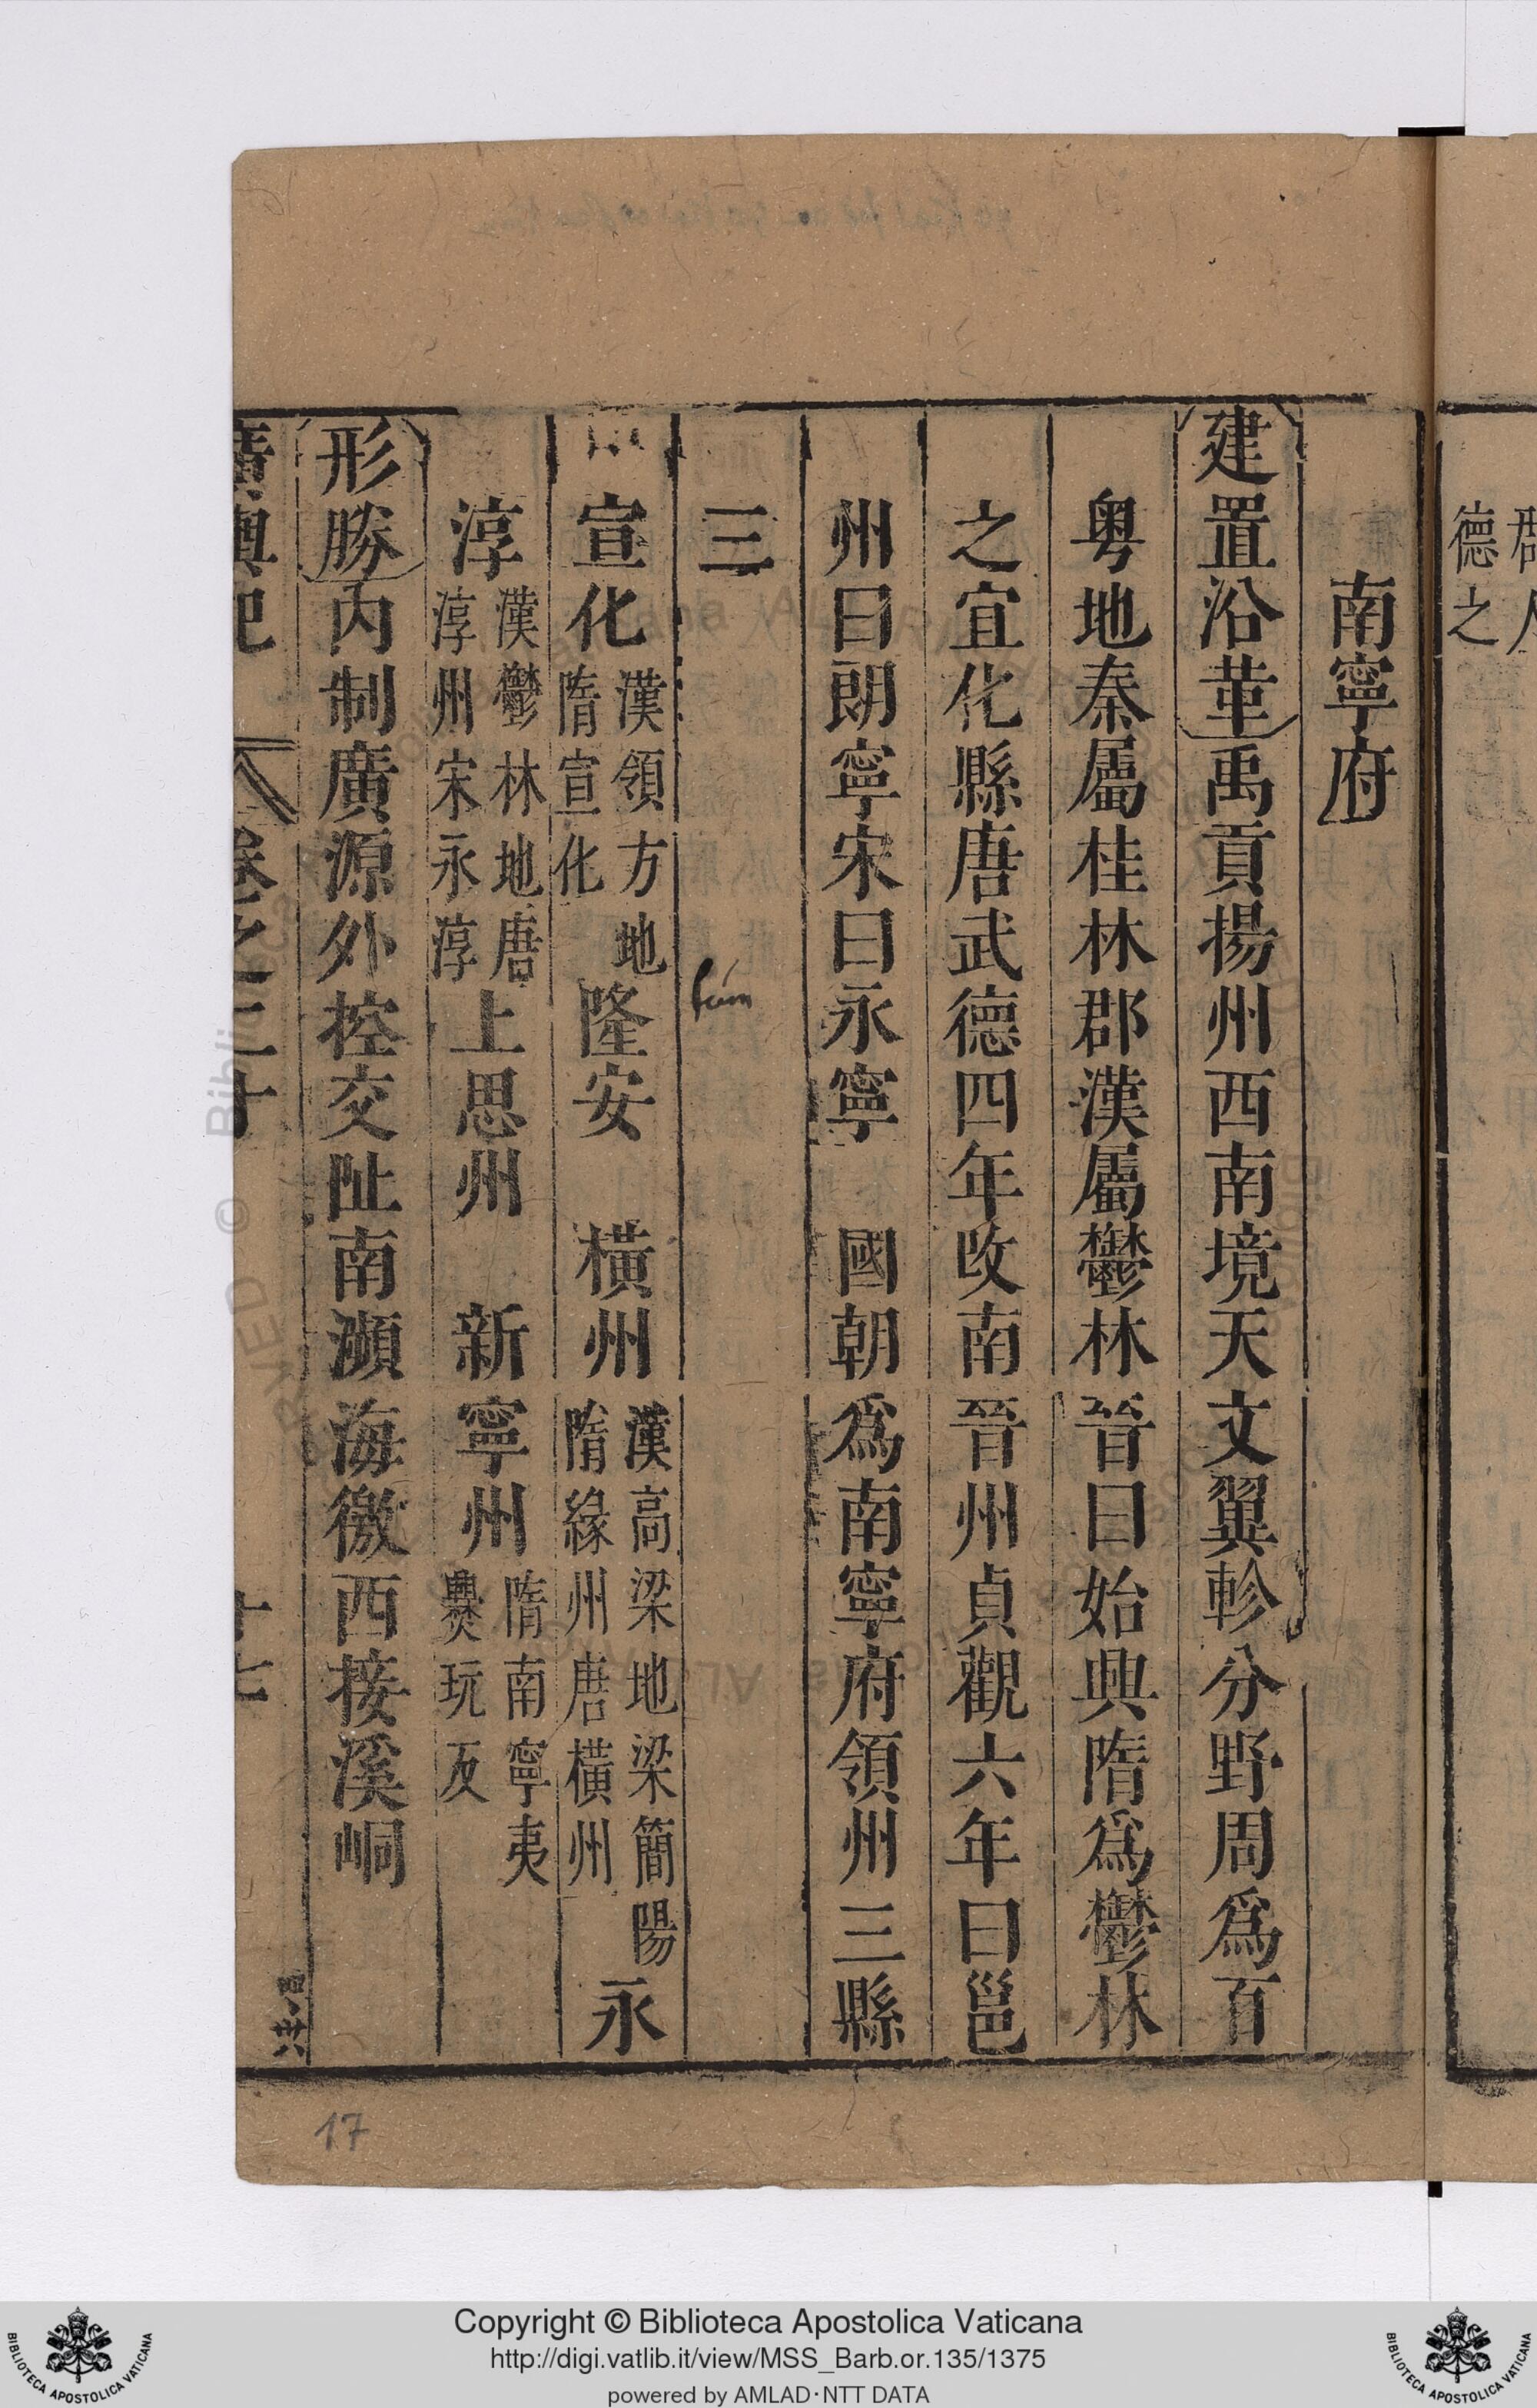 德之
南寧府
建置沿革禹貢揚州西南境天文翼軫分野周爲百
粤地秦屬桂林郡漢屬鬱林晉曰始興隋爲鬱林
之宣化縣唐武德四年改南晉州貞觀六年曰邕
州曰朗寧宋曰永寧 國朝爲南寧府領州三縣
三
宣化漢領方地隋宣化 隆安 橫州漢高梁地梁簡陽隋緣州唐橫州 永
淳漢鬱林地唐淳州宋永淳 上思州 新寧州隋南寧夷爨玩反
形勝内制廣源外控交阯南瀕海徼西接溪峒
廣輿記 卷之二十 十七
17
Copyright © Biblioteca Apostolica Vaticana
http://digi.vatlib.it/view/MSS_Barb.or.135/1375
powered by AMLAD·NTT DATA
BIBLIOTECA APOSTOLICA VATICANA
BIBLIOTECA APOSTOLICA VATICANA